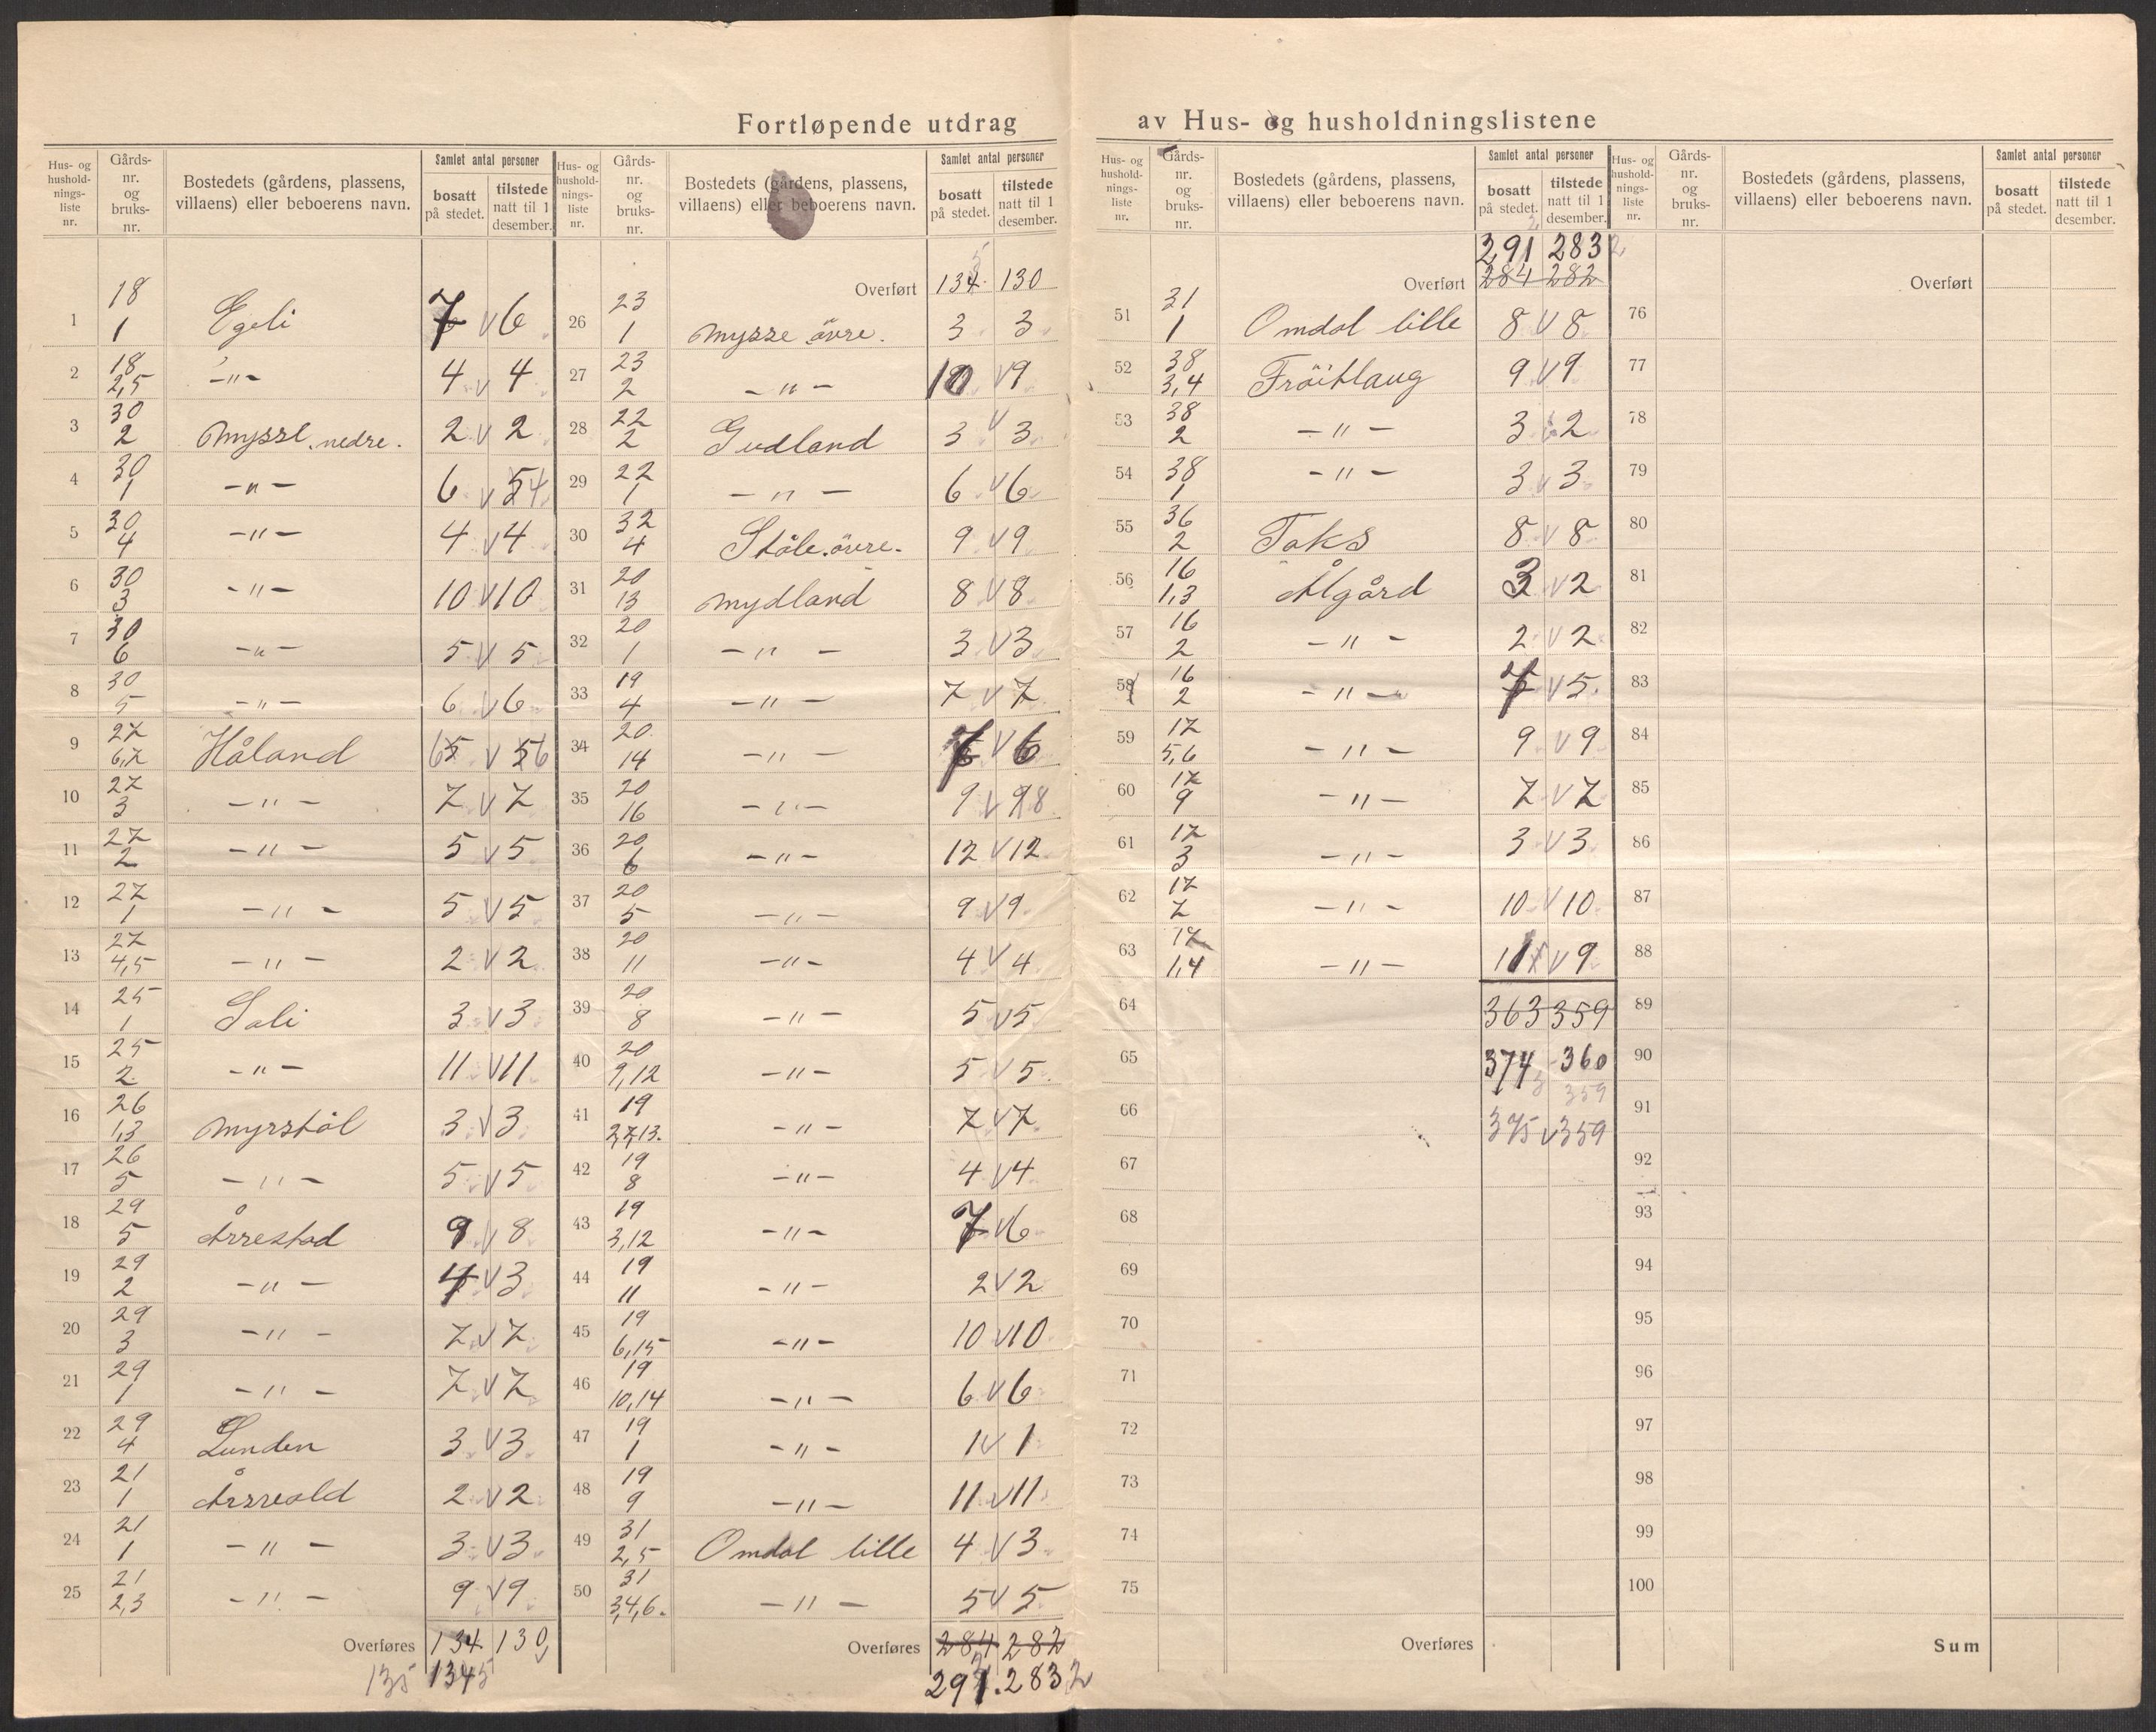 Fortløpende utdrag av Hus- og husholdningslistene
Hus- og husholdnings-liste nr. | Gårds-nr. og bruks-nr. | Bostedets (gårdens, plassens, villaens) eller beboerens navn. | Samlet antal personer | bosatt på stedet. | tilstede natt til 1 desember.
1 18 1 Egeli 7 v 6
2 18 2,5 -"- 4 v 4
3 30 2 Mysse nedre. 2 v 2
4 30 1 -"- 6 v 5 4
5 30 4 -"- 4 v 4
6 30 3 -"- 10 v 10
7 30 6 -"- 5 v 5
8 30 5 -"- 6 v 6
9 27 6,7 Håland 6 5 v 5 6
10 27 3 -"- 7 v 7
11 27 2 -"- 5 v 5
12 27 1 -"- 5 v 5
13 27 4,5 -"- 2 v 2
14 25 1 Sali 3 v 3
15 25 2 -"- 11 v 11
16 26 1,3 Myrstöl 3 v 3
17 26 5 -"- 5 v 5
18 29 5 Årrestad 9 v 8
19 29 2 -"- 4 v 3
20 29 3 -"- 7 v 7
21 29 1 -"- 7 v 7
22 29 4 Lunden 3 v 3
23 21 1 Årsvold 2 v 2
24 21 1 -"- 3 v 3
25 21 2,3 -"- 9 v 9
Overføres 134 130
135 1345
Hus- og husholdnings-liste nr. | Gårds-nr. og bruks-nr. | Bostedets (gårdens, plassens, villaens) eller beboerens navn. | Samlet antal personer | bosatt på stedet. | tilstede natt til 1 desember.
Overført 134 5 130
26 23 1 Mysse övre. 3 3
27 23 2 -"- 10 v 9
28 22 2 Gudland 3 v 3
29 22 1 -"- 6 v 6
30 32 4 Støle övre. 9 v 9
31 20 13 Mydland 8 v 8
32 20 1 -"- 3 v 3
33 19 4 -"- 7 v 7
34 20 14 -"- 7 v 6
35 20 16 -"- 9 v 9 8
36 20 6 -"- 12 v 12
37 20 5 -"- 9 v 9
38 20 11 -"- 4 v 4
39 20 8 -"- 5 v 5
40 20 9,12 -"- 5 v 5
41 19 2,7,13. -"- 7 v 7
42 19 8 -"- 4 v 4
43 19 3,12 -"- 7 v 6
44 19 11 -"- 2 v 2
45 19 6,15 -"- 10 v 10
46 19 10,14 -"- 6 v 6
47 19 1 -"- 1 v 1
48 19 9 -"- 11 v 11
49 31 2,5 Omdal lille 4 v 3
50 31 3,4,6. -"- 5 v 5
Overføres 284 282
291. 283 2
Hus- og husholdnings-liste nr. | Gårds-nr. og bruks-nr. | Bostedets (gårdens, plassens, villaens) eller beboerens navn. | Samlet antal personer | bosatt på stedet. | tilstede natt til 1 desember.
291 283 2
Overført 284 282
51 31 1 Omdal lille 8 v 8
52 38 3,4 Fröitlaug 9 v 9
53 38 2 -"- 3 2
54 38 1 -"- 3 v 3
55 36 2 Taks 8 v 8
56 16 1,3 Ålgård 3 v 2
57 16 2 -"- 2 v 2
58 16 2 -"- 7 v 5
59 17 5,6 -"- 9 v 9
60 17 9 -"- 7 v 7
61 17 3 -"- 3 v 3
62 17 7 -"- 10 v 10
63 17 1,4 -"- 11 v 9
64 363 359
65 374 360
359
66 375 v 359
67
68
69
70
71
72
73
74
75
Overføres
Hus- og husholdnings-liste nr. | Gårds-nr. og bruks-nr. | Bostedets (gårdens, plassens, villaens) eller beboerens navn. | Samlet antal personer | bosatt på stedet. | tilstede natt til 1 desember.
Overført
76
77
78
79
80
81
82
83
84
85
86
87
88
89
90
91
92
93
94
95
96
97
98
99
100
Sum